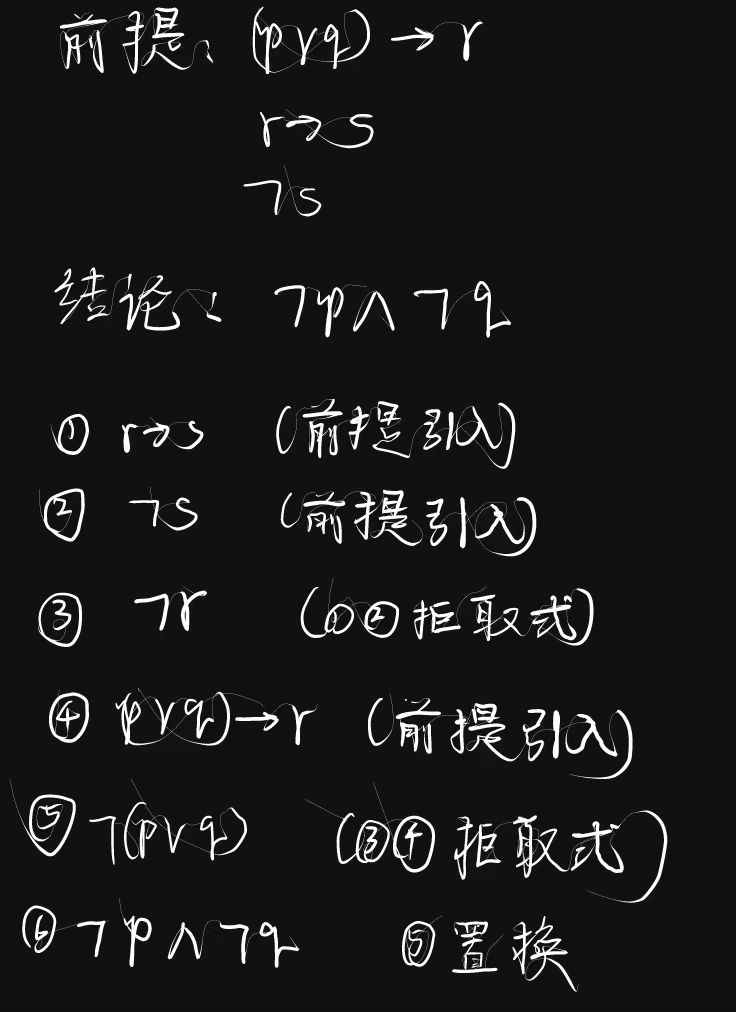 前提: (p∨q)→r
r→s
¬s
结论: ¬p∧¬q
① r→s (前提引入)
② ¬s (前提引入)
③ ¬r (①②拒取式)
④ (p∨q)→r (前提引入)
⑤ ¬(p∨q) (③④拒取式)
⑥ ¬p∧¬q ⑤置换